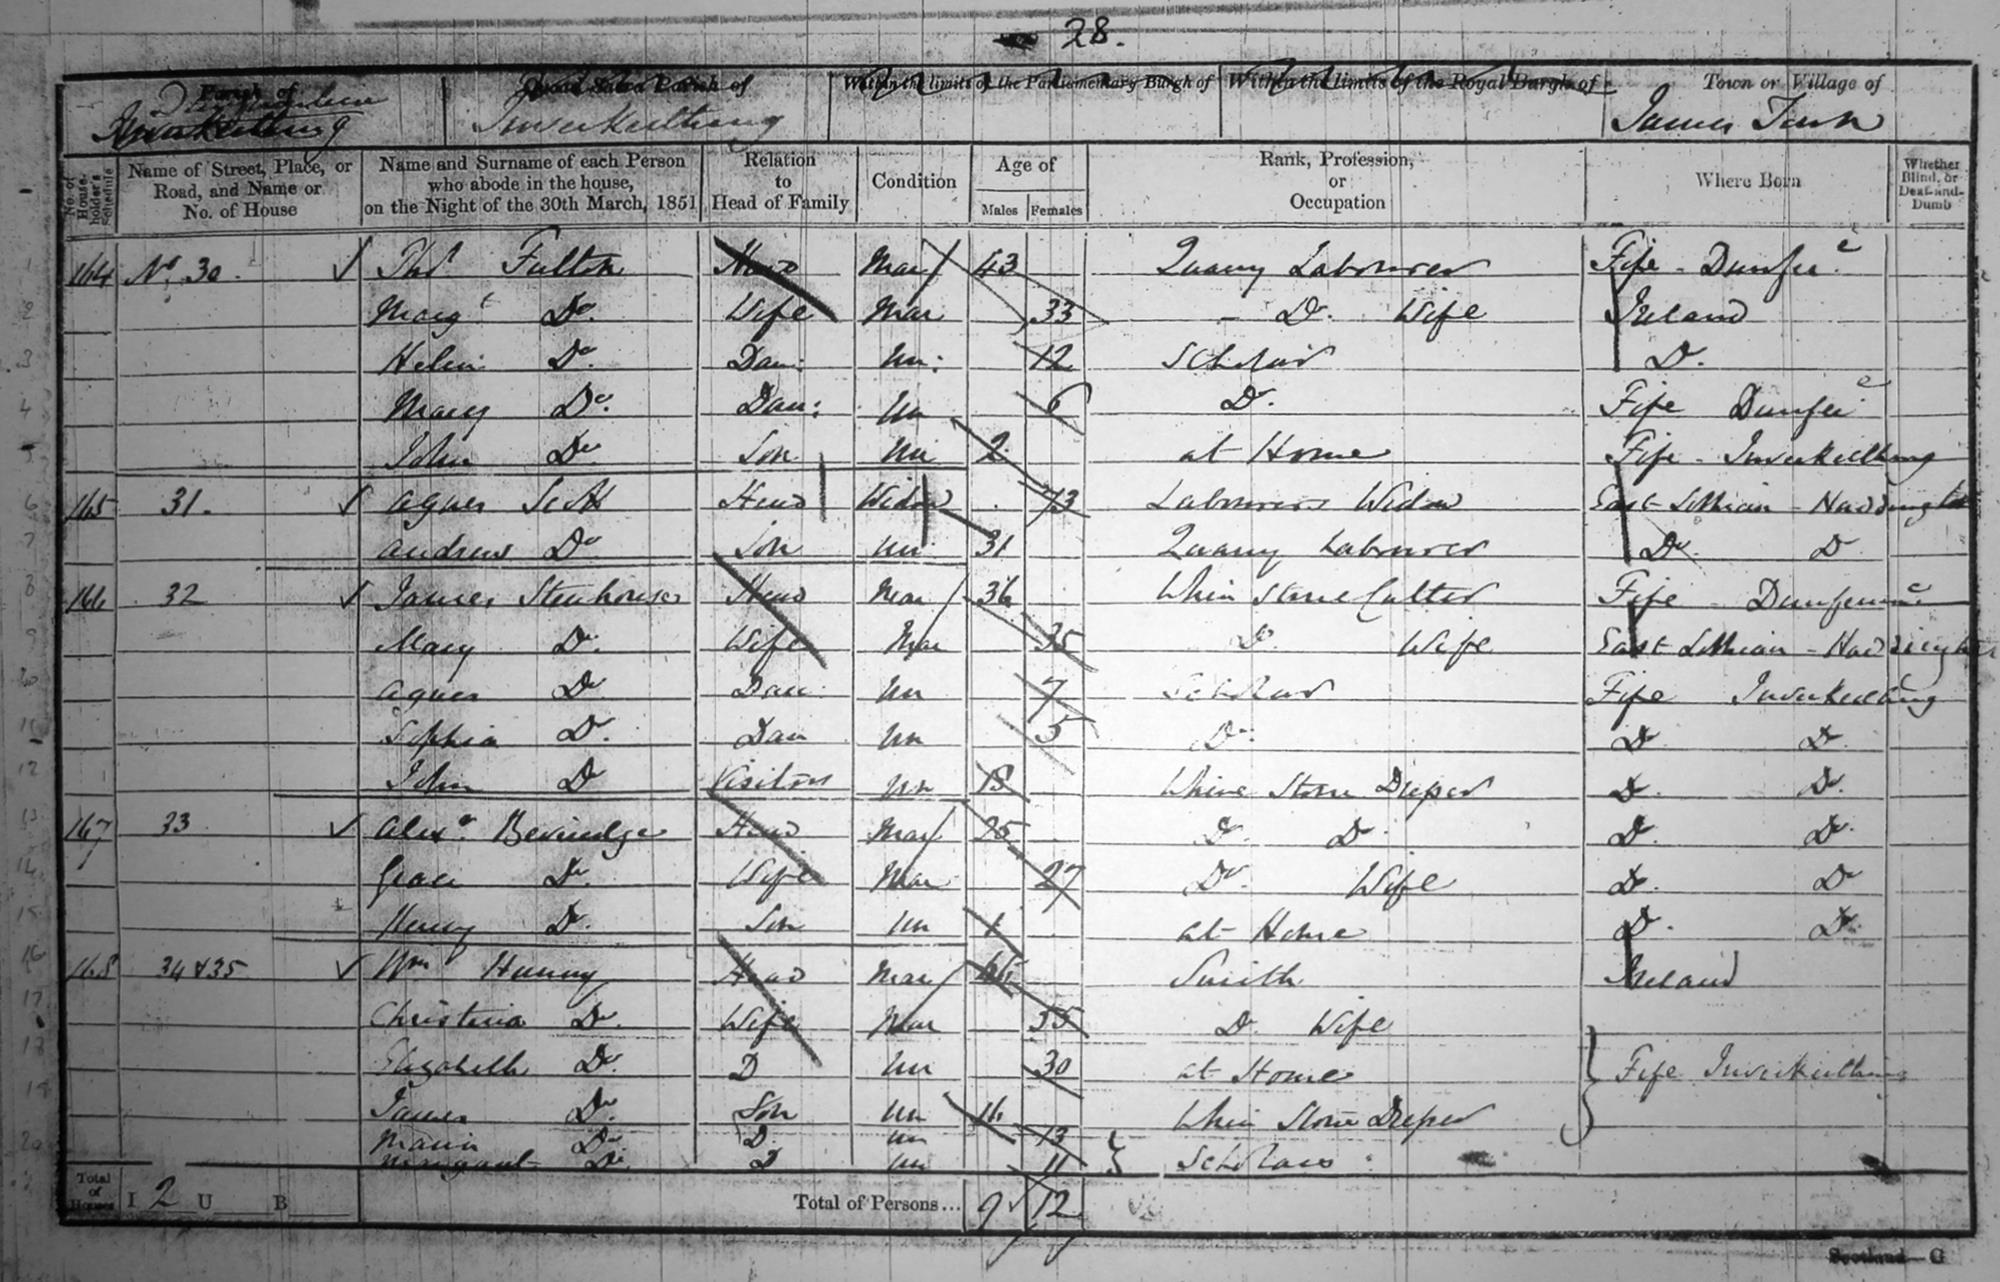 28.
Parish of
Dunfermline
Inverkeithing
Quoad Sacra Parish of
Inverkeithing
Within the limits of the Parliamentary Burgh of
Within the limits of the Royal Burgh of
Town or Village of
James Town
No. of House-holder's Schedule
Name of Street, Place, or Road, and Name or No. of House
Name and Surname of each Person who abode in the house, on the Night of the 30th March, 1851
Relation to Head of Family
Condition
Age of
Males
Females
Rank, Profession, or Occupation
Where Born
Whether Blind, or Deaf-and-Dumb
1 164 No. 30 Thos Fulton Head Mar 43 Quarry Labourer Fife - Dunfe e
2 Margt Do. Wife Mar 33 - Do. Wife Ireland
3 Helen Do. Dau: Un: 12 Scholar Do.
4 Mary Do. Dau: Un 6 Do. Fife Dunfe e
5 John Do Son Un 2 at Home Fife - Inverkeithing
6 165 31. Agnes Scott Head Widow 73 Labourers Widow East Lothian - Haddington
7 Andrew Do Son Un 31 Quarry Labourer Do. Do
8 166 32 James Stenhouse Head Mar 36 Whin Stone Cutter Fife - Dunfermne
9 Mary Do. Wife Mar 35 Do Wife East Lothian - Haddington
10 Agnes Do Dau: Un 7 Scholar Fife Inverkeithing
11 Sophia Do. Dau Un 5 Do. Do Do
12 John Do Visitor Un 18 Whine Stone Dresser Do. Do.
13 167 33 Alexr. Beveridge Head Mar 25 Do. Do Do. Do.
14 Grace Do. Wife Mar 27 Do. Wife Do. Do
15 Henry Do. Son Un 1 at Home Do. Do.
16 168 34 & 35 Wm Hunny Head Mar Smith Ireland
17 Christina Do. Wife Mar 55 Do. Wife
18 Elizabeth Do. D Un 30 at Home Fife Inverkeithing
19 James Do. Son Un 16 Whin Stone Dresser
20 Do. D. Un 13
Margaret Do. D Un 11 Scholars
Total of Houses I 2 U B
Total of Persons... 9 12
Scotland—G